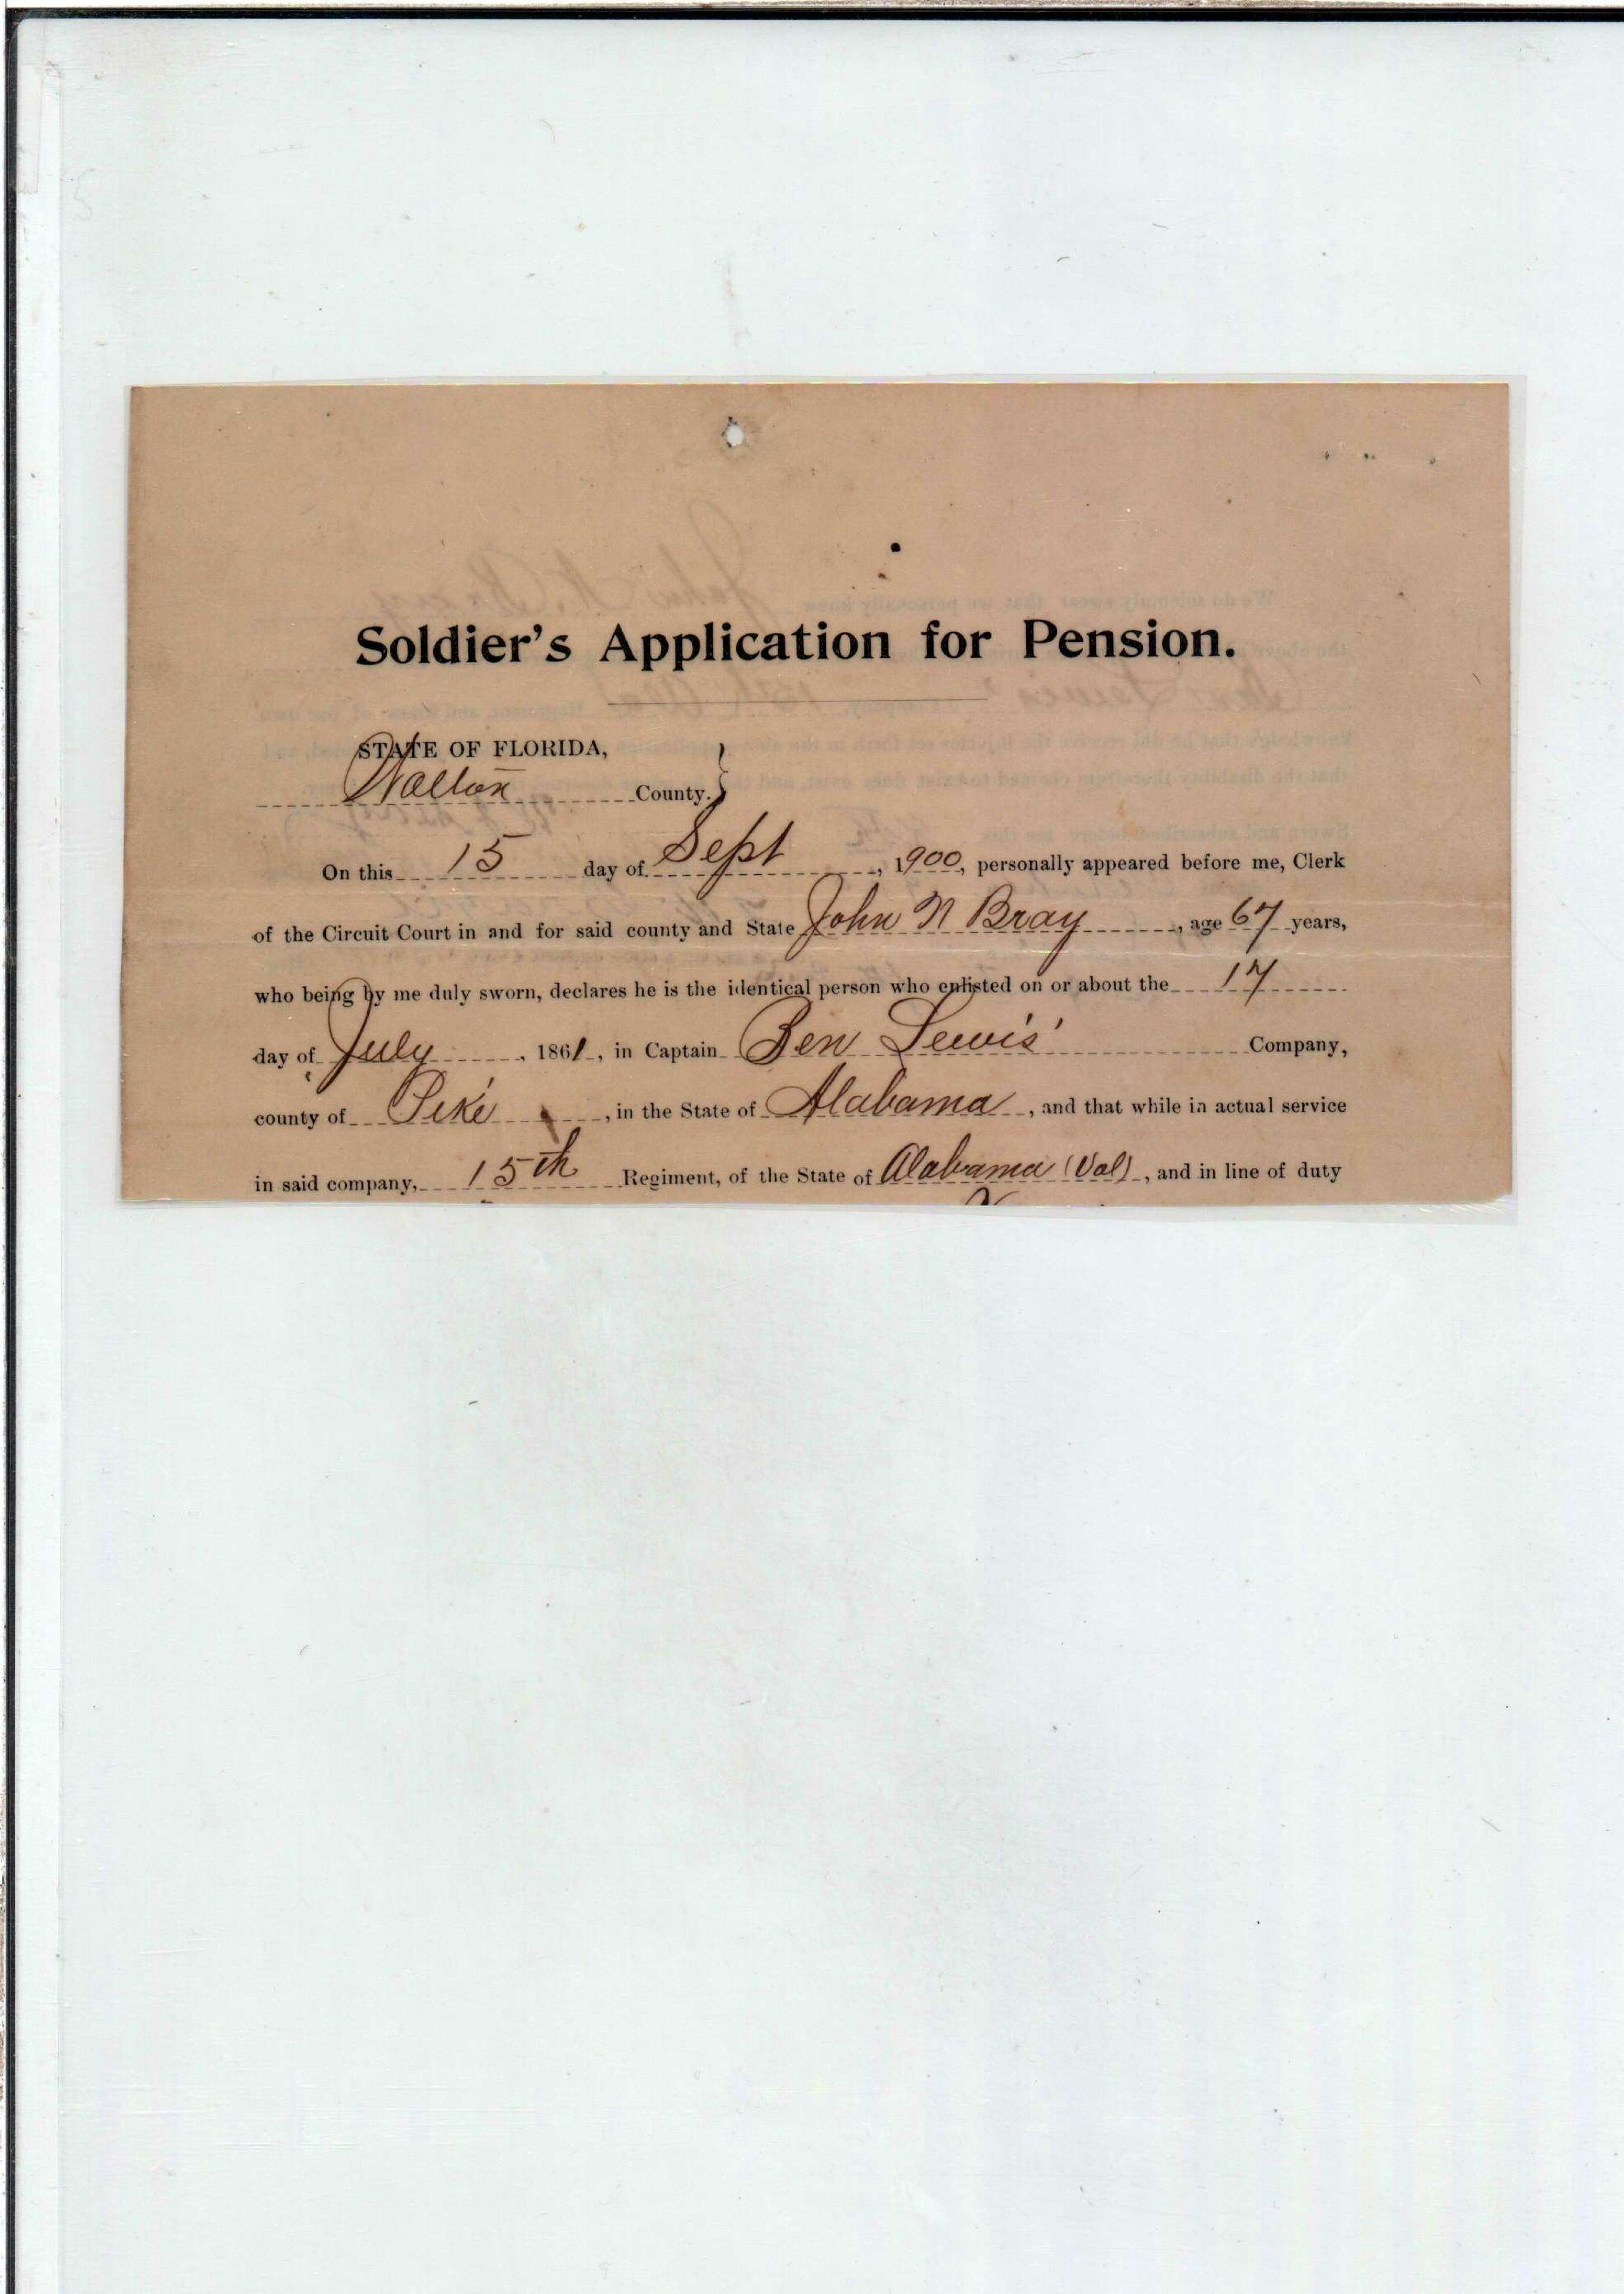 Soldier's Application for Pension.
STATE OF FLORIDA,
Walton County.
On this 15 day of Sept, 1900, personally appeared before me, Clerk
of the Circuit Court in and for said county and State John N Bray, age 67 years,
who being by me duly sworn, declares he is the identical person who enlisted on or about the 17
day of July, 1861, in Captain Ben Lewis' Company,
county of Pike, in the State of Alabama, and that while in actual service
in said company, 15th Regiment, of the State of Alabama (Vol), and in line of duty